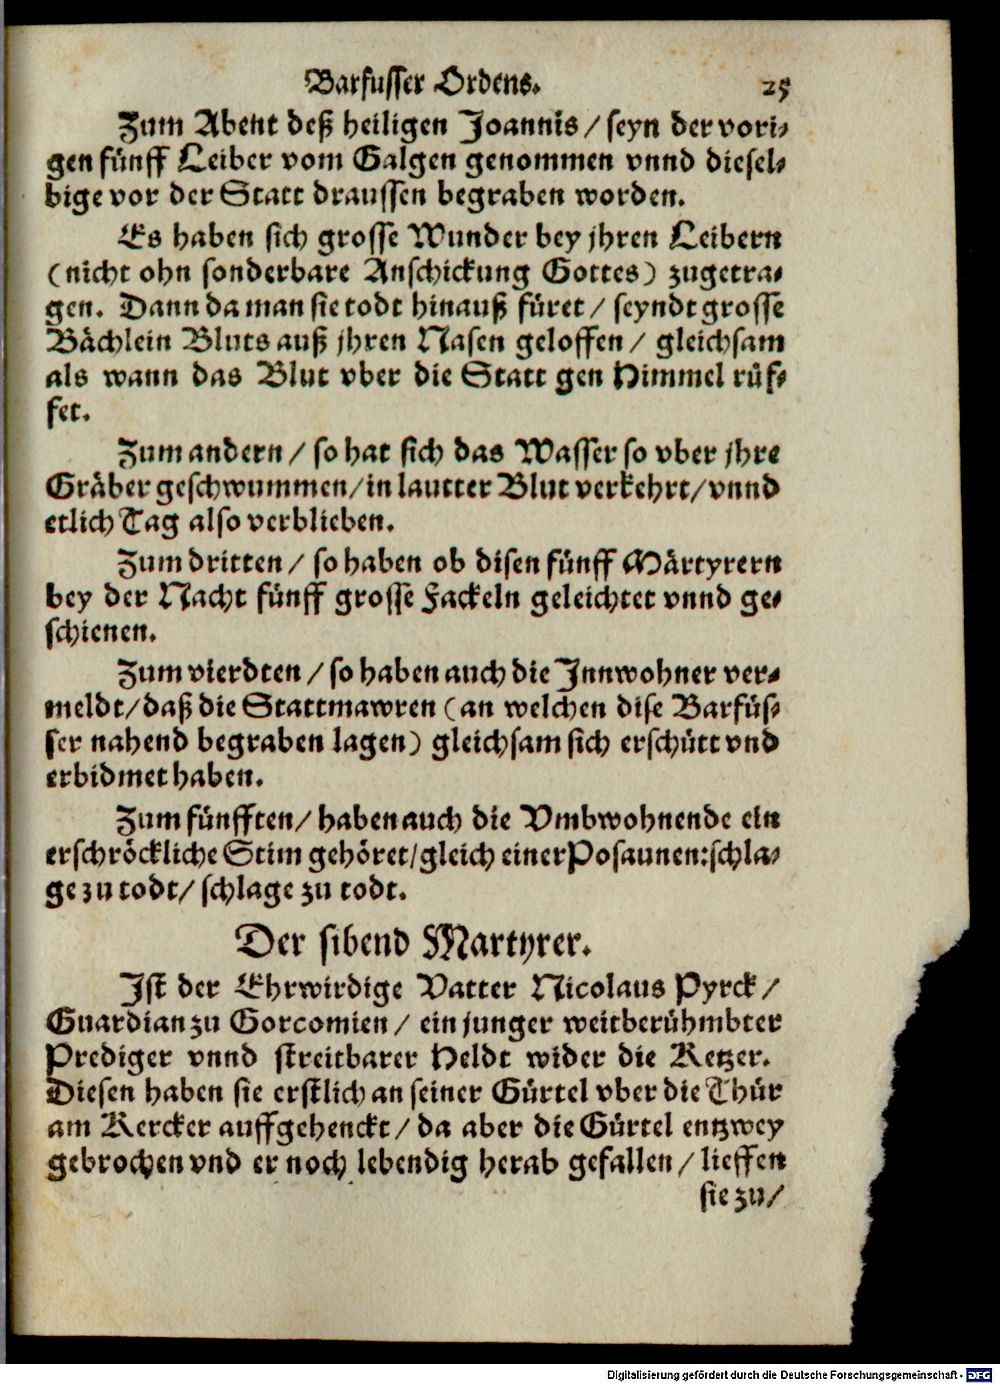 Barfusser Ordens. 25
Zum Abent deß heiligen Joannis / seyn der vori-
gen fünff Leiber vom Galgen genommen vnnd diesel-
bige vor der Statt draussen begraben worden.
Es haben sich grosse Wunder bey jhren Leibern
(nicht ohn sonderbare Anschickung Gottes) zugetra-
gen. Dann da man sie todt hinauß füret / seyndt grosse
Bächlein Bluts auß jhren Nasen geloffen / gleichsam
als wann das Blut vber die Statt gen Himmel rüf-
fet.
Zum andern / so hat sich das Wasser so vber jhre
Gräber geschwummen / in lautter Blut verkehrt / vnnd
etlich Tag also verblieben.
Zum dritten / so haben ob disen fünff Märtyrern
bey der Nacht fünff grosse Fackeln geleichtet vnnd ge-
schienen.
Zum vierdten / so haben auch die Innwohner ver-
meldt / daß die Stattmawren (an welchen dise Barfüs-
ser nahend begraben lagen) gleichsam sich erschütt vnd
erbidmet haben.
Zum fünfften / haben auch die Vmbwohnende ein
erschröckliche Stim gehöret / gleich einer Posaunen: schla-
ge zu todt / schlage zu todt.
Der sibend Martyrer.
Ist der Ehrwirdige Vatter Nicolaus Pyrck /
Guardian zu Gorcomien / ein junger weitberühmbter
Prediger vnnd streitbarer Heldt wider die Ketzer.
Diesen haben sie erstlich an seiner Gürtel vber die Thür
am Kercker auffgehenckt / da aber die Gürtel entzwey
gebrochen vnd er noch lebendig herab gefallen / lieffen
sie zu /
Digitalisierung gefördert durch die Deutsche Forschungsgemeinschaft - DFG